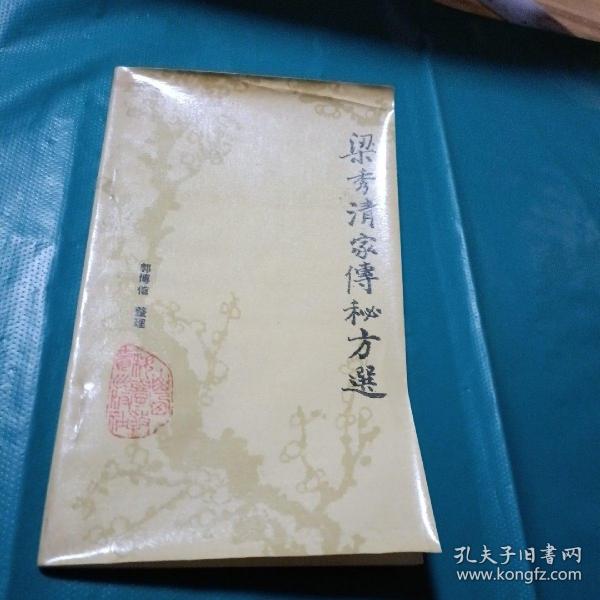 梁秀清家傳秘方選
郭博信 整理
孔夫子旧书网
www.kongfz.com